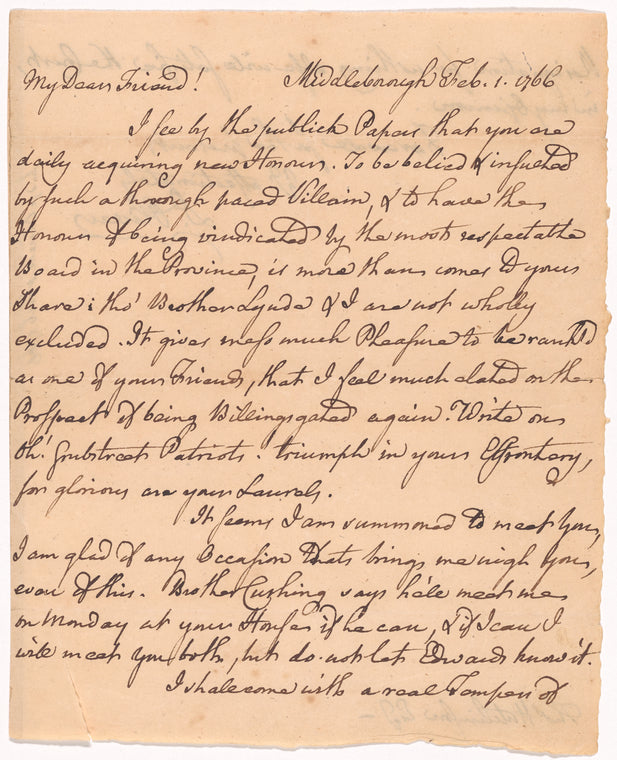 My Dear Friend! Middleborough Feb. 1. 1766
I see by the publick Papers that you are
daily acquiring new Honours. To be belied & insulted
by such a thorough paced Villain, & to have the
Honour of being vindicated by the most respectable
Board in the Province, is more than comes to your
Share: tho' Brother Lynde & I are not wholly
excluded. It gives me so much Pleasure to be rank'd
as one of your Friends, that I feel much elated on the
Prospect of being Billingsgated again. Write on
Oh! Grubstreet Patriots. triumph in your Effrontery,
for glorious are your Laurels.
It seems I am summoned to meet you,
I am glad of any Occasion that brings me nigh you,
even of this. Brother Cushing says he'le meet me
on Monday at your House if he can, & if I can I
will meet you both, but do not let Edwards know it.
I shall come with a real Temper of